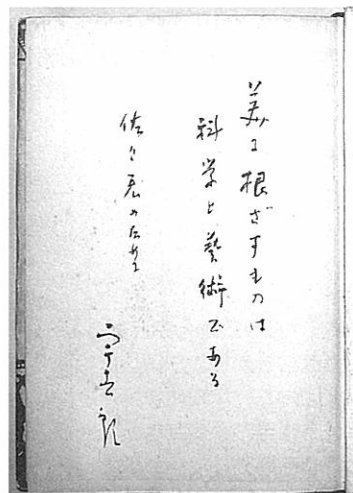 美に根ざすものは
科学と藝術である
佐々君のために
宇吉郎